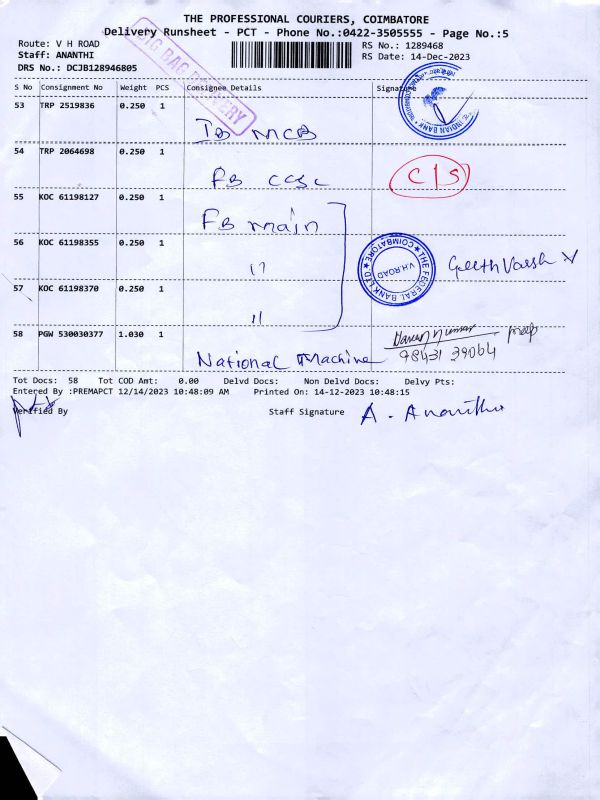 THE PROFESSIONAL COURIERS, COIMBATORE
Delivery Runsheet - PCT - Phone No.:0422-3505555 - Page No.:5
Route: V H ROAD
RS No.: 1289468
Staff: ANANTHI
RS Date: 14-Dec-2023
DRS No.: DCJB128946805
BIG BAG DELIVERY
S No Consignment No Weight PCS Consignee Details Signature
53 TRP 2519836 0.250 1
IB MCB
INDIAN BANK
54 TRP 2064698 0.250 1
FB CCSC
C/S
55 KOC 61198127 0.250 1
FB main
56 KOC 61198355 0.250 1
"
THE FEDERAL BANK LTD ★ COIMBATORE ★
V.H.ROAD
Geeth Varsh V
57 KOC 61198370 0.250 1
"
58 PGW 530030377 1.030 1
National Machine
98431 39064
Tot Docs: 58 Tot COD Amt: 0.00 Delvd Docs: Non Delvd Docs: Delvy Pts:
Entered By :PREMAPCT 12/14/2023 10:48:09 AM Printed On: 14-12-2023 10:48:15
Verified By
Staff Signature A. Ananthi